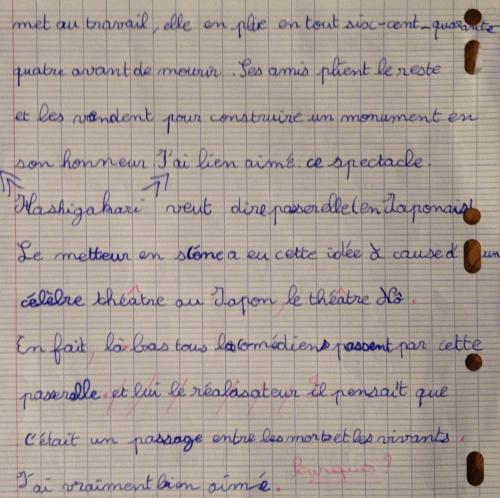 met au travail, elle en plie en tout six-cent-quarante
quatre avant de mourir. Ses amis plient le reste
et les vendent pour construire un monument en
son honneur. J'ai bien aimé ce spectacle.
Hashigakari veut dire passerelle (en Japonais)
Le metteur en scène a eu cette idée à cause d'un
célèbre théâtre au Japon, le théâtre Nô.
En fait, là bas tous les comédiens passent par cette
passerelle. et lui le réalisateur il pensait que
c'était un passage entre les morts et les vivants.
J'ai vraiment bien aimé. Pourquoi ?